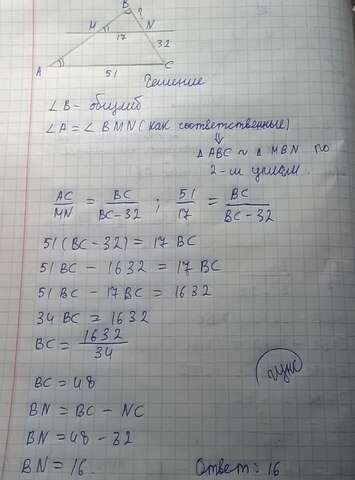 B
?
M
N
17
32
A
51
C
Решение
∠B - общий
∠A = ∠BMN (как соответственные)
⇓
△ABC ~ △MBN по
2-м углам.
AC/MN = BC/(BC-32) ; 51/17 = BC/(BC-32)
51(BC-32) = 17 BC
51 BC - 1632 = 17 BC
51 BC - 17 BC = 1632
34 BC = 1632
BC = 1632/34
BC = 48
BN = BC - NC
BN = 48 - 32
BN = 16.
Ответ: 16